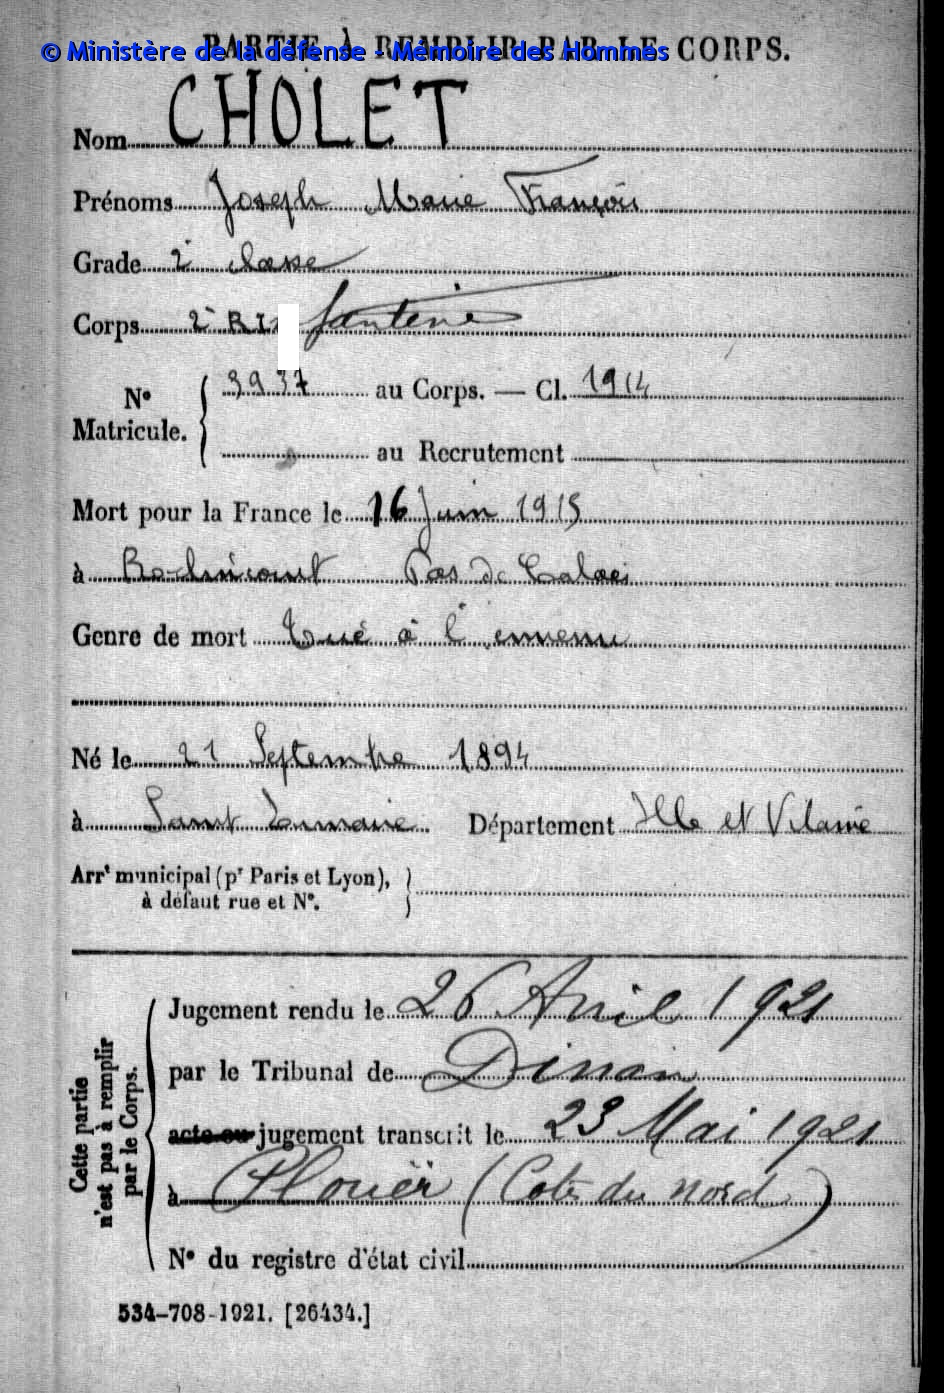 PARTIE À REMPLIR PAR LE CORPS.
© Ministère de la défense - Mémoire des Hommes
Nom CHOLET
Prénoms Joseph Marie François
Grade 2e classe
Corps 2e RI fanterie
No Matricule. { 3937 au Corps. — Cl. 1914
au Recrutement
Mort pour la France le 16 Juin 1915
à Roclincourt Pas de Calais
Genre de mort Tué à l'ennemi
Né le 21 Septembre 1894
à Saint Département Ille et Vilaine
Arrt municipal (pr Paris et Lyon), }
à défaut rue et No.
Cette partie n'est pas à remplir par le Corps.
Jugement rendu le 26 Avril 1921
par le Tribunal de Dinan
acte ou jugement transcrit le 23 Mai 1921
à Plouër (Cote du Nord)
No du registre d'état civil
534-708-1921. [26434.]